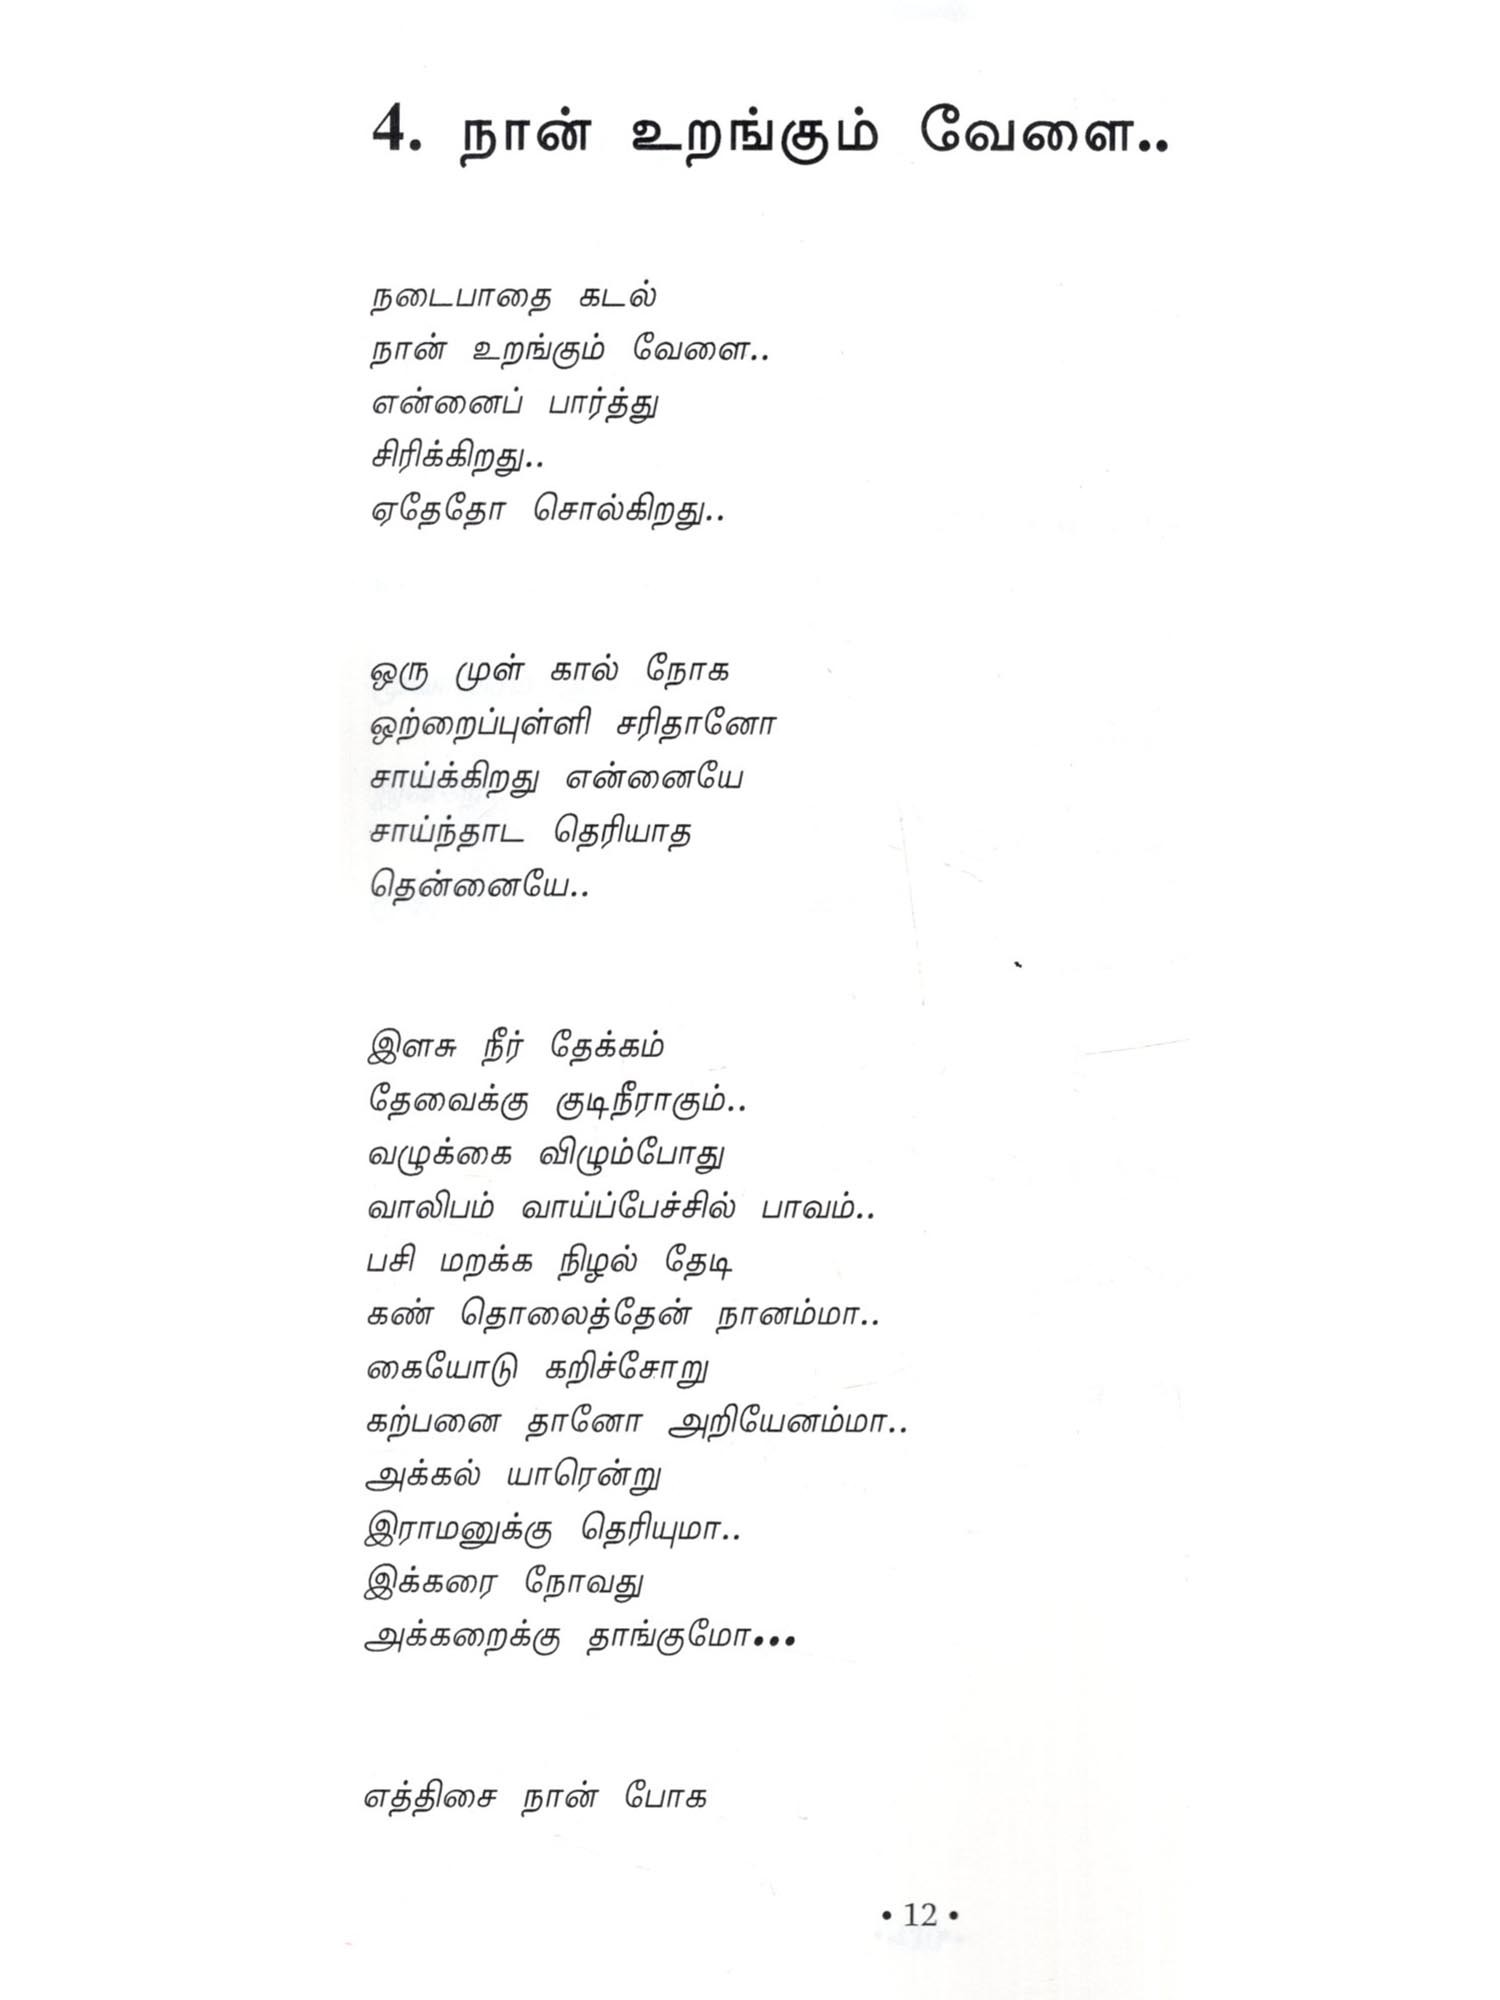 4. நான் உறங்கும் வேளை..
நடைபாதை கடல்
நான் உறங்கும் வேளை..
என்னைப் பார்த்து
சிரிக்கிறது..
ஏதேதோ சொல்கிறது..
ஒரு முள் கால் நோக
ஒற்றைப்புள்ளி சரிதானோ
சாய்க்கிறது என்னையே
சாய்ந்தாட தெரியாத
தென்னையே..
இளசு நீர் தேக்கம்
தேவைக்கு குடிநீராகும்..
வழுக்கை விழும்போது
வாலிபம் வாய்ப்பேச்சில் பாவம்..
பசி மறக்க நிழல் தேடி
கண் தொலைத்தேன் நானம்மா..
கையோடு கறிச்சோறு
கற்பனை தானோ அறியேனம்மா..
அக்கல் யாரென்று
இராமனுக்கு தெரியுமா..
இக்கரை நோவது
அக்கறைக்கு தாங்குமோ...
எத்திசை நான் போக
• 12 •